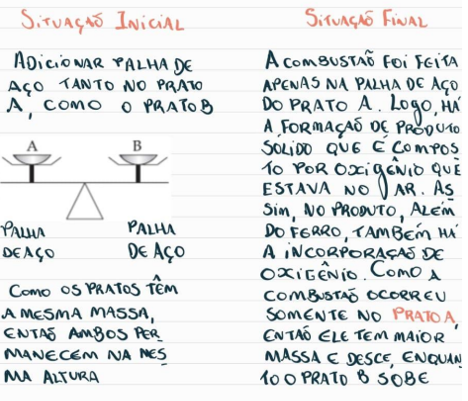 SITUAÇÃO INICIAL
ADICIONAR PALHA DE
AÇO TANTO NO PRATO
A, COMO O PRATO B
A B
PALHA PALHA
DE AÇO DE AÇO
COMO OS PRATOS TÊM
A MESMA MASSA,
ENTÃO AMBOS PER
MANECEM NA MES
MA ALTURA
SITUAÇÃO FINAL
A COMBUSTÃO FOI FEITA
APENAS NA PALHA DE AÇO
DO PRATO A. LOGO, HÁ
A FORMAÇÃO DE PRODUTO
SÓLIDO QUE É COMPOS
TO POR OXIGÊNIO QUE
ESTAVA NO AR. AS
SIM, NO PRODUTO, ALÉM
DO FERRO, TAMBÉM HÁ
A INCORPORAÇÃO DE
OXIGÊNIO. COMO A
COMBUSTÃO OCORREU
SOMENTE NO PRATO A,
ENTÃO ELE TEM MAIOR
MASSA E DESCE, ENQUAN
TO O PRATO B SOBE